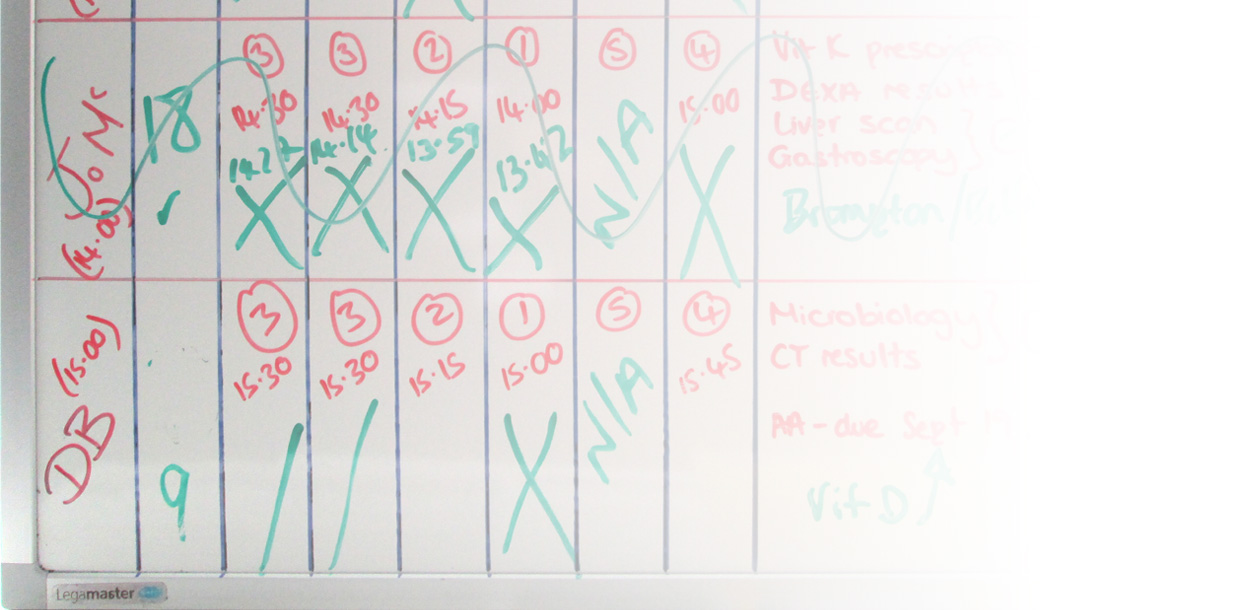 JoMc
(14.00)
18
3
14:30
3
14:30
14.14
2
14.15
13.59
1
14:00
5
N/A
4
15:00
Vit K
DEXA results
Liver scan
Gastroscopy
Brompton
DB
(15.00)
9
3
15.30
3
15.30
2
15.15
1
15:00
5
N/A
4
15.45
Microbiology
CT results
AA - due Sept
Vit D
Legamaster